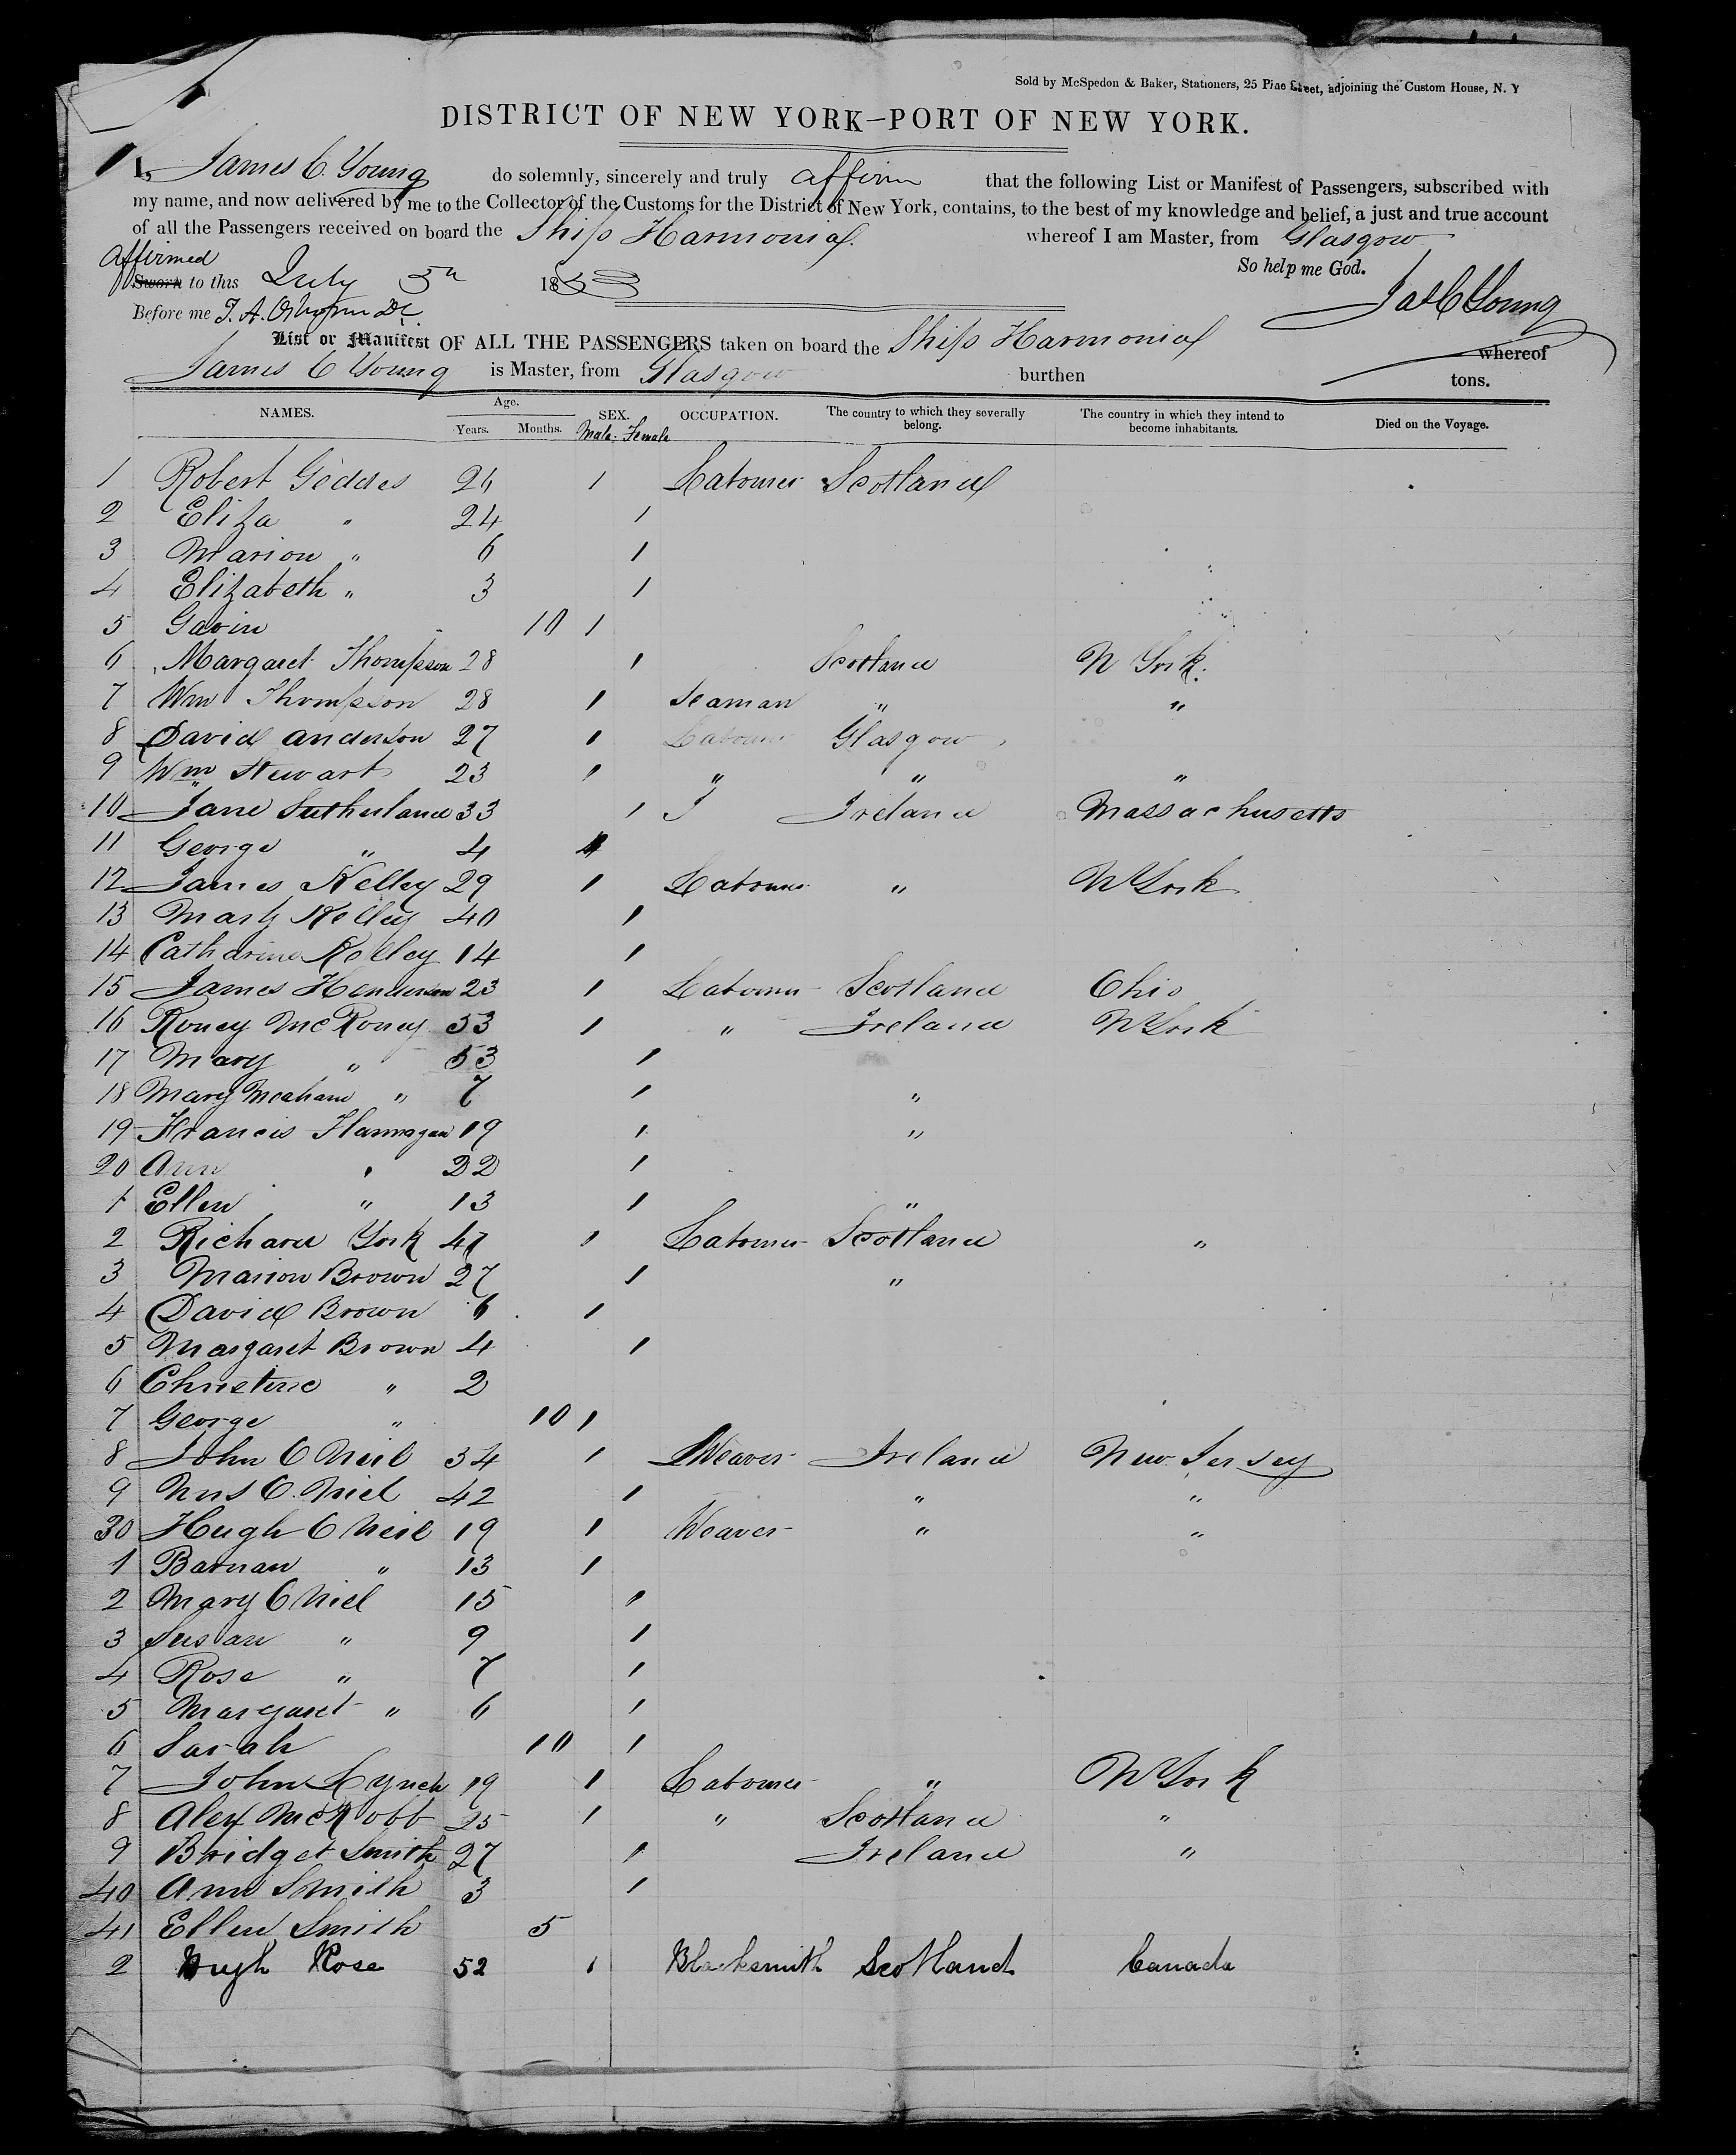 Sold by McSpedon & Baker, Stationers, 25 Pine Street, adjoining the Custom House, N. Y
DISTRICT OF NEW YORK—PORT OF NEW YORK.
I, James C. Young do solemnly, sincerely and truly affirm that the following List or Manifest of Passengers, subscribed with
my name, and now delivered by me to the Collector of the Customs for the District of New York, contains, to the best of my knowledge and belief, a just and true account
of all the Passengers received on board the Ship Harmonia whereof I am Master, from Glasgow
Affirmed So help me God.
Sworn to this July 5th 1853 Jas C Young
Before me
List or Manifest OF ALL THE PASSENGERS taken on board the Ship Harmonia whereof
James C Young is Master, from Glasgow burthen tons.
NAMES. Age. Years. Months. SEX. Male. Female OCCUPATION. The country to which they severally belong. The country in which they intend to become inhabitants. Died on the Voyage.
1 Robert Geddes 26 1 Labourer Scotland
2 Eliza " 24 1
3 Marion " 6 1
4 Elizabeth " 3 1
5 Gavin 10 1
6 Margaret Thompson 28 1 Scotland N York.
7 Wm Thompson 28 1 Seaman " "
8 David Anderson 27 1 Labourer Glasgow
9 Wm Stewart 23 1 " " "
10 Jane Sutherland 33 1 Ireland Massachusetts
11 George " 4 1
12 James Kelley 29 1 Labourer " N York
13 Mary Kelley 40 1
14 Catharine Kelley 14 1
15 James Henderson 23 1 Labourer Scotland Ohio
16 Roney McRoney 53 1 " Ireland N York
17 Mary " 53 1
18 Mary " 7 1 "
19 Francis Flannagan 19 1 "
20 Ann " 22 1
1 Ellen " 13 1 "
2 Richard York 47 1 Labourer Scotland "
3 Marion Brown 27 1 "
4 David Brown 6 1
5 Margaret Brown 4 1
6 Christine " 2
7 George " 10 1
8 John O Neil 34 1 Weaver Ireland New Jersey
9 Mrs O. Niel 42 1 " "
30 Hugh O Neil 19 1 Weaver " "
1 Barnan " 13 1
2 Mary O Niel 15 1
3 Susan " 9 1
4 Rose " 7 1
5 Margaret " 6 1
6 Sarah 10 1
7 John Lynch 19 1 Labourer " N York
8 Alex McRobb 25 1 " Scotland "
9 Bridget Smith 27 1 Ireland "
40 Ann Smith 3 1
41 Ellen Smith 5
2 Hugh Rose 52 1 Blacksmith Scotland Canada